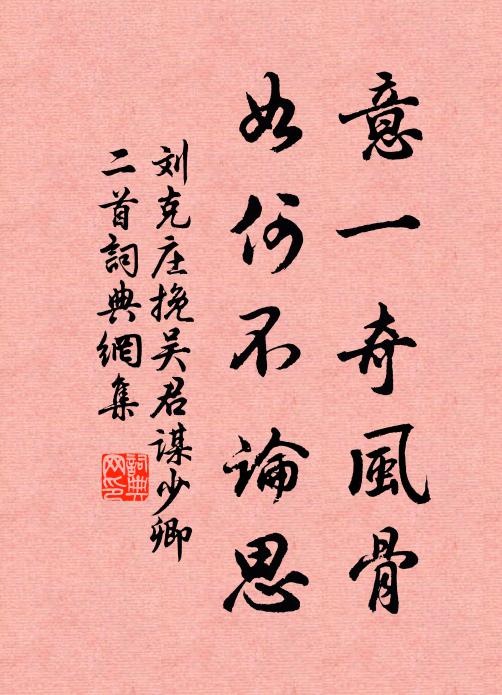 意一奇風骨
如何不論思
刘克庄挽吴君谋少卿
二首詞典網集
詞典网印